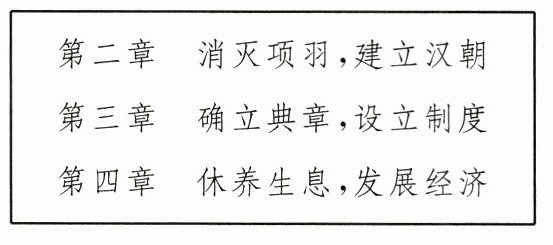 第二章 消灭项羽,建立汉朝
第三章 确立典章,设立制度
第四章 休养生息,发展经济